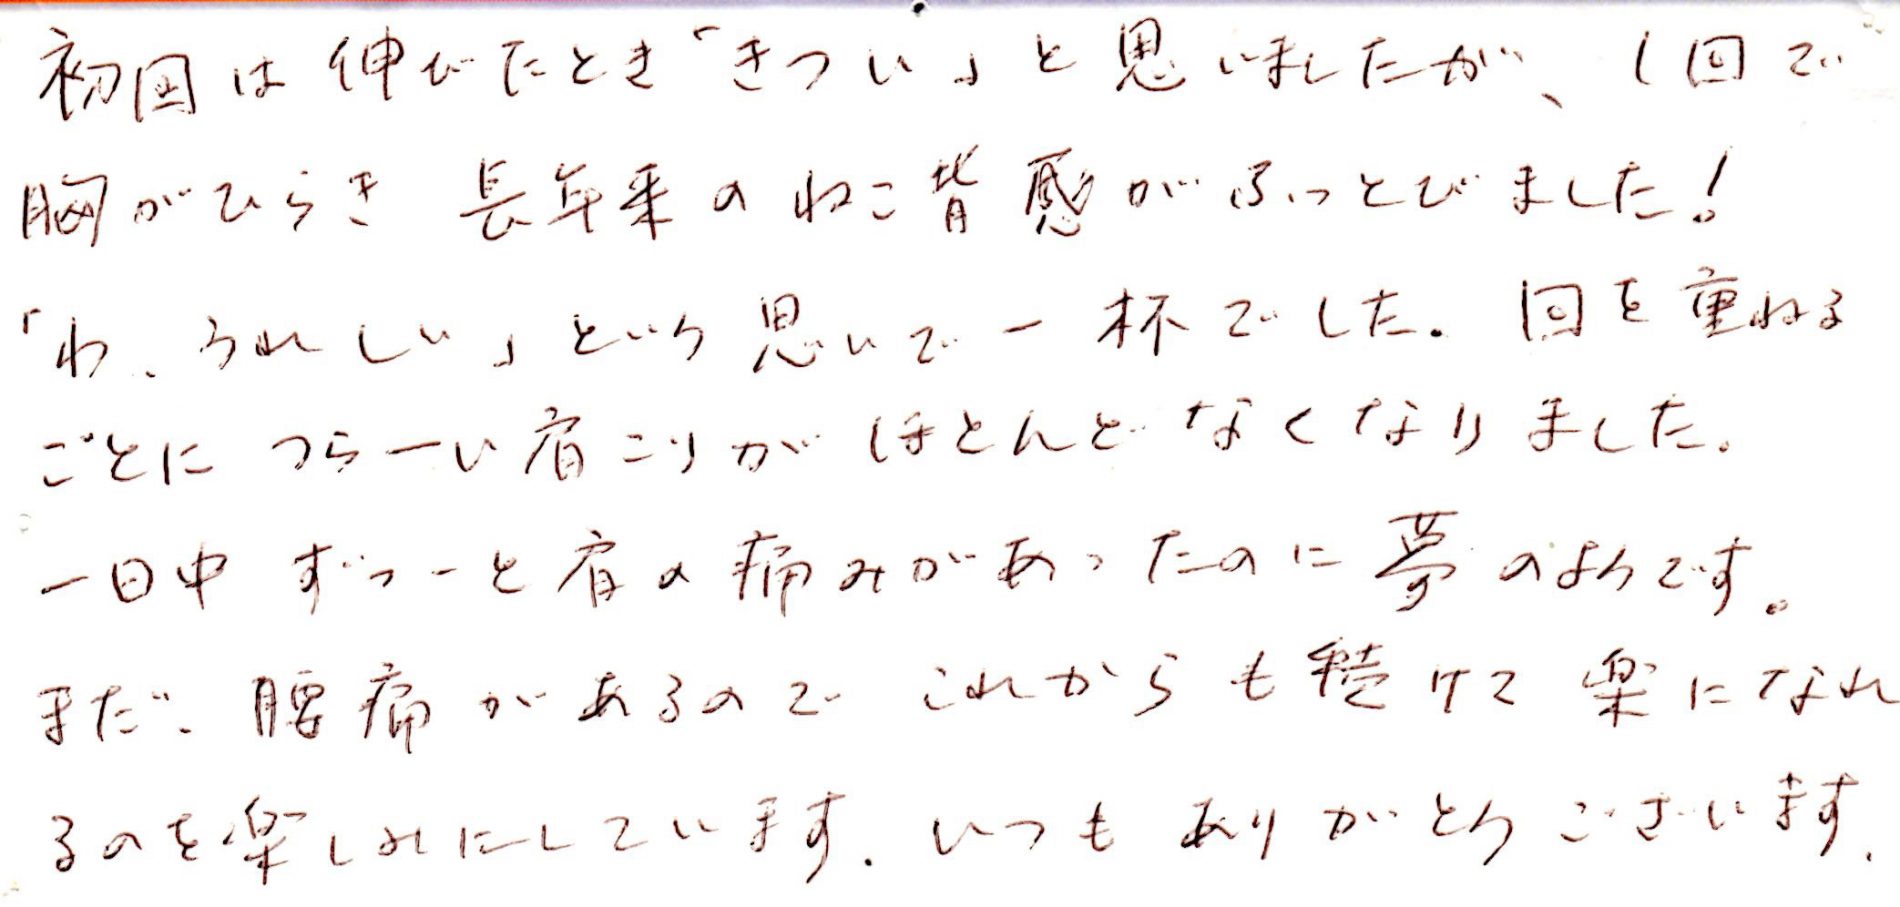 初回は伸びたとき「きつい」と思いましたが、1回で
胸がひらき 長年来のねこ背感がふっとびました!
「わ、うれしい」という思いで一杯でした。回を重ねる
ごとに つらーい肩こりがほとんどなくなりました。
一日中 ずっーと肩の痛みがあったのに夢のようです。
まだ、腰痛があるのでこれからも続けて楽になれ
るのを楽しみにしています。いつもありがとうございます。